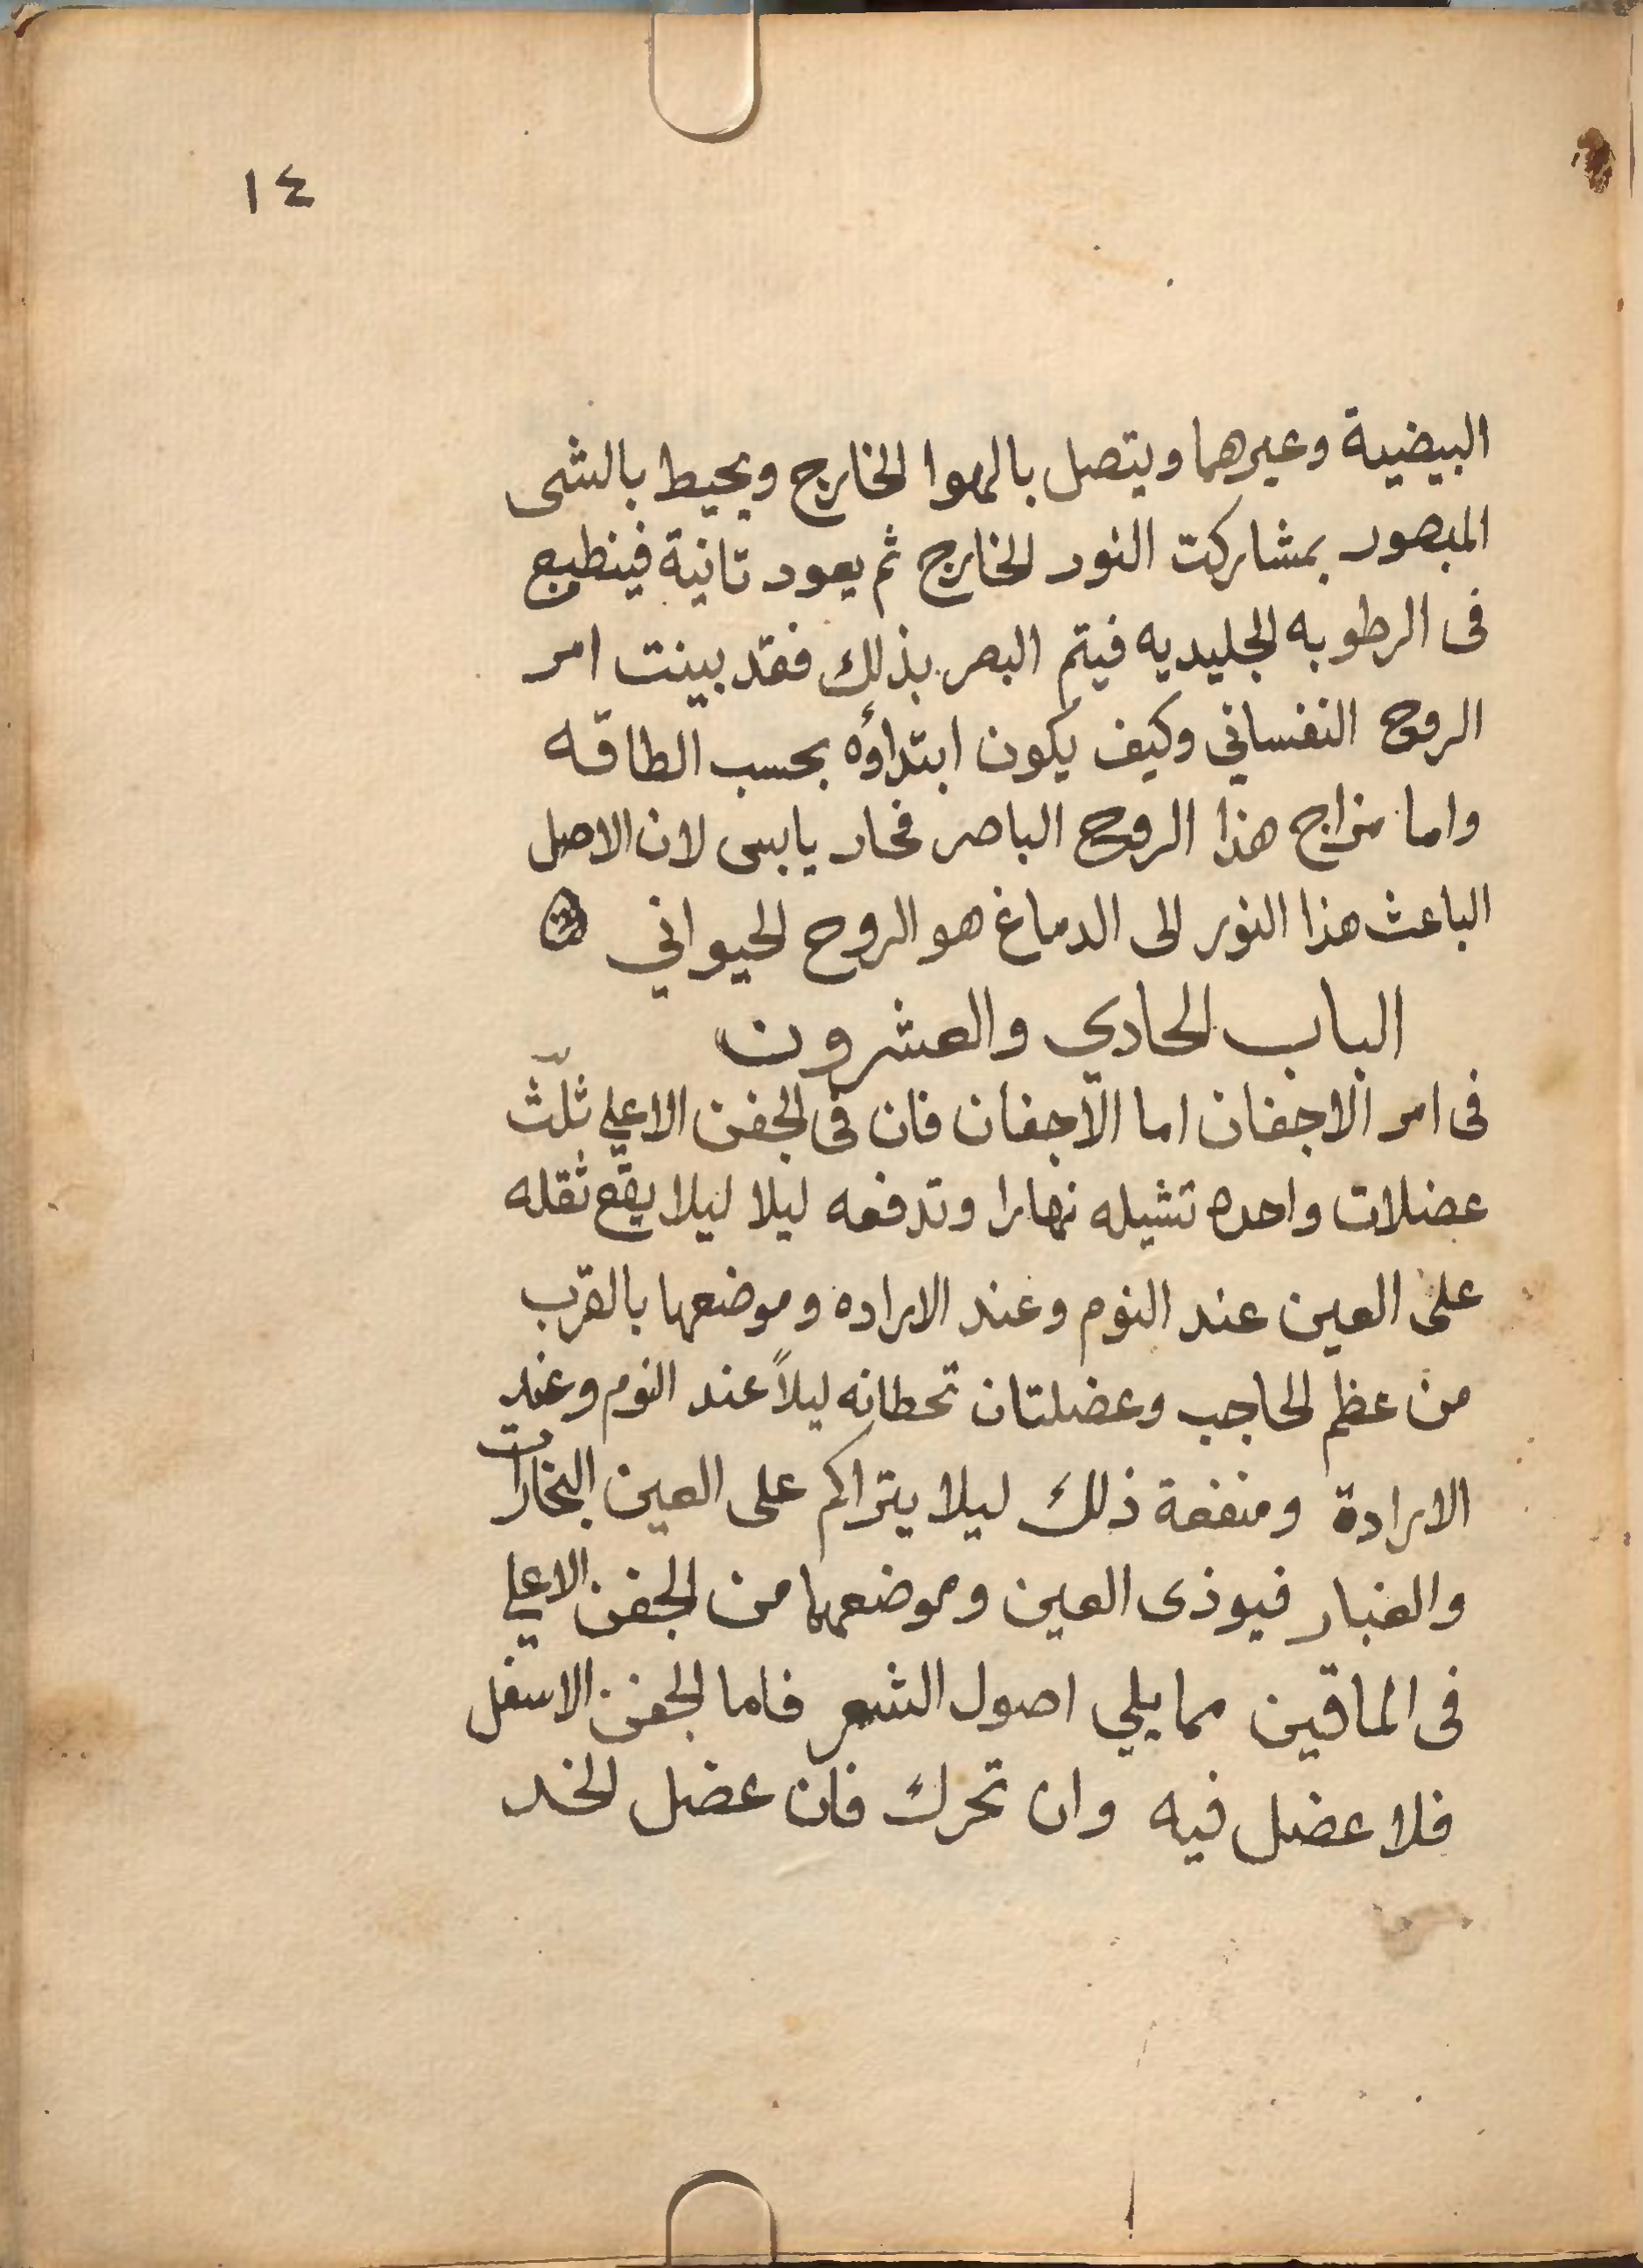 ١٤
البيضية وعيرهما ويتصل بالهوا الخارج ويحيط بالشى
المبصور بمشاركت النور الخارج ثم يعود تانية فينطبع
فى الرطوبه الجليديه فيتم البصر بذلك فقد بينت امر
الروح النفساني وكيف يكون ابتداؤه بحسب الطاقه
واما مزاج هذا الروح الباصر فحار يابس لان الاصل
الباعث هذا النور الى الدماغ هو الروح الحيواني
الباب الحادي والعشرون
فى امر الاجفان اما الاجفان فان فى الجفن الاعلي ثلث
عضلات واحده تشيله نهارا وتدفعه ليلا ليلا يقع ثقله
على العين عند النوم وعند الاراده وموضعها بالقرب
من عظم الحاجب وعضلتان تحطانه ليلاً عند النوم وعند
الارادة ومنفعة ذلك ليلا يتراكم على العين البخارات
والغبار فيوذى العين وموضعهما من الجفن الاعلي
فى الماقين مما يلي اصول الشعر فاما الجفن الاسفل
فلا عضل فيه وان تحرك فان عضل الخد